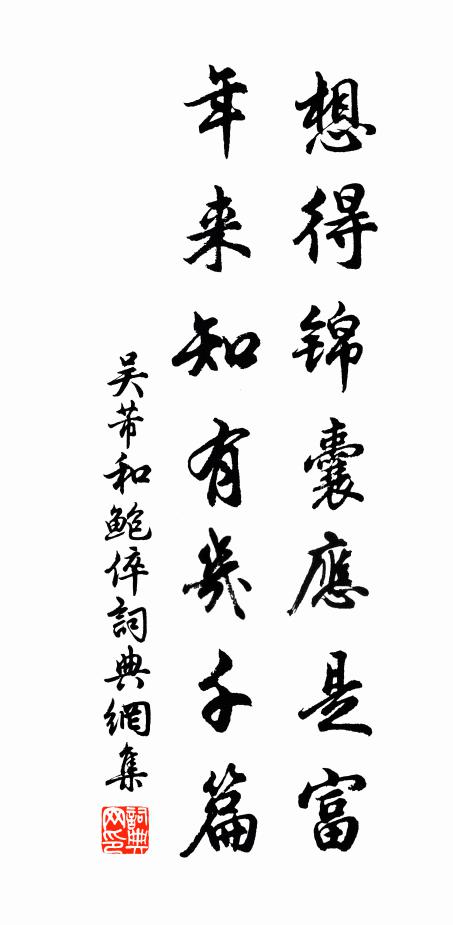 想得锦囊應是富
年来知有幾千篇
吴芾和鲍倅詞典網集
詞典网印